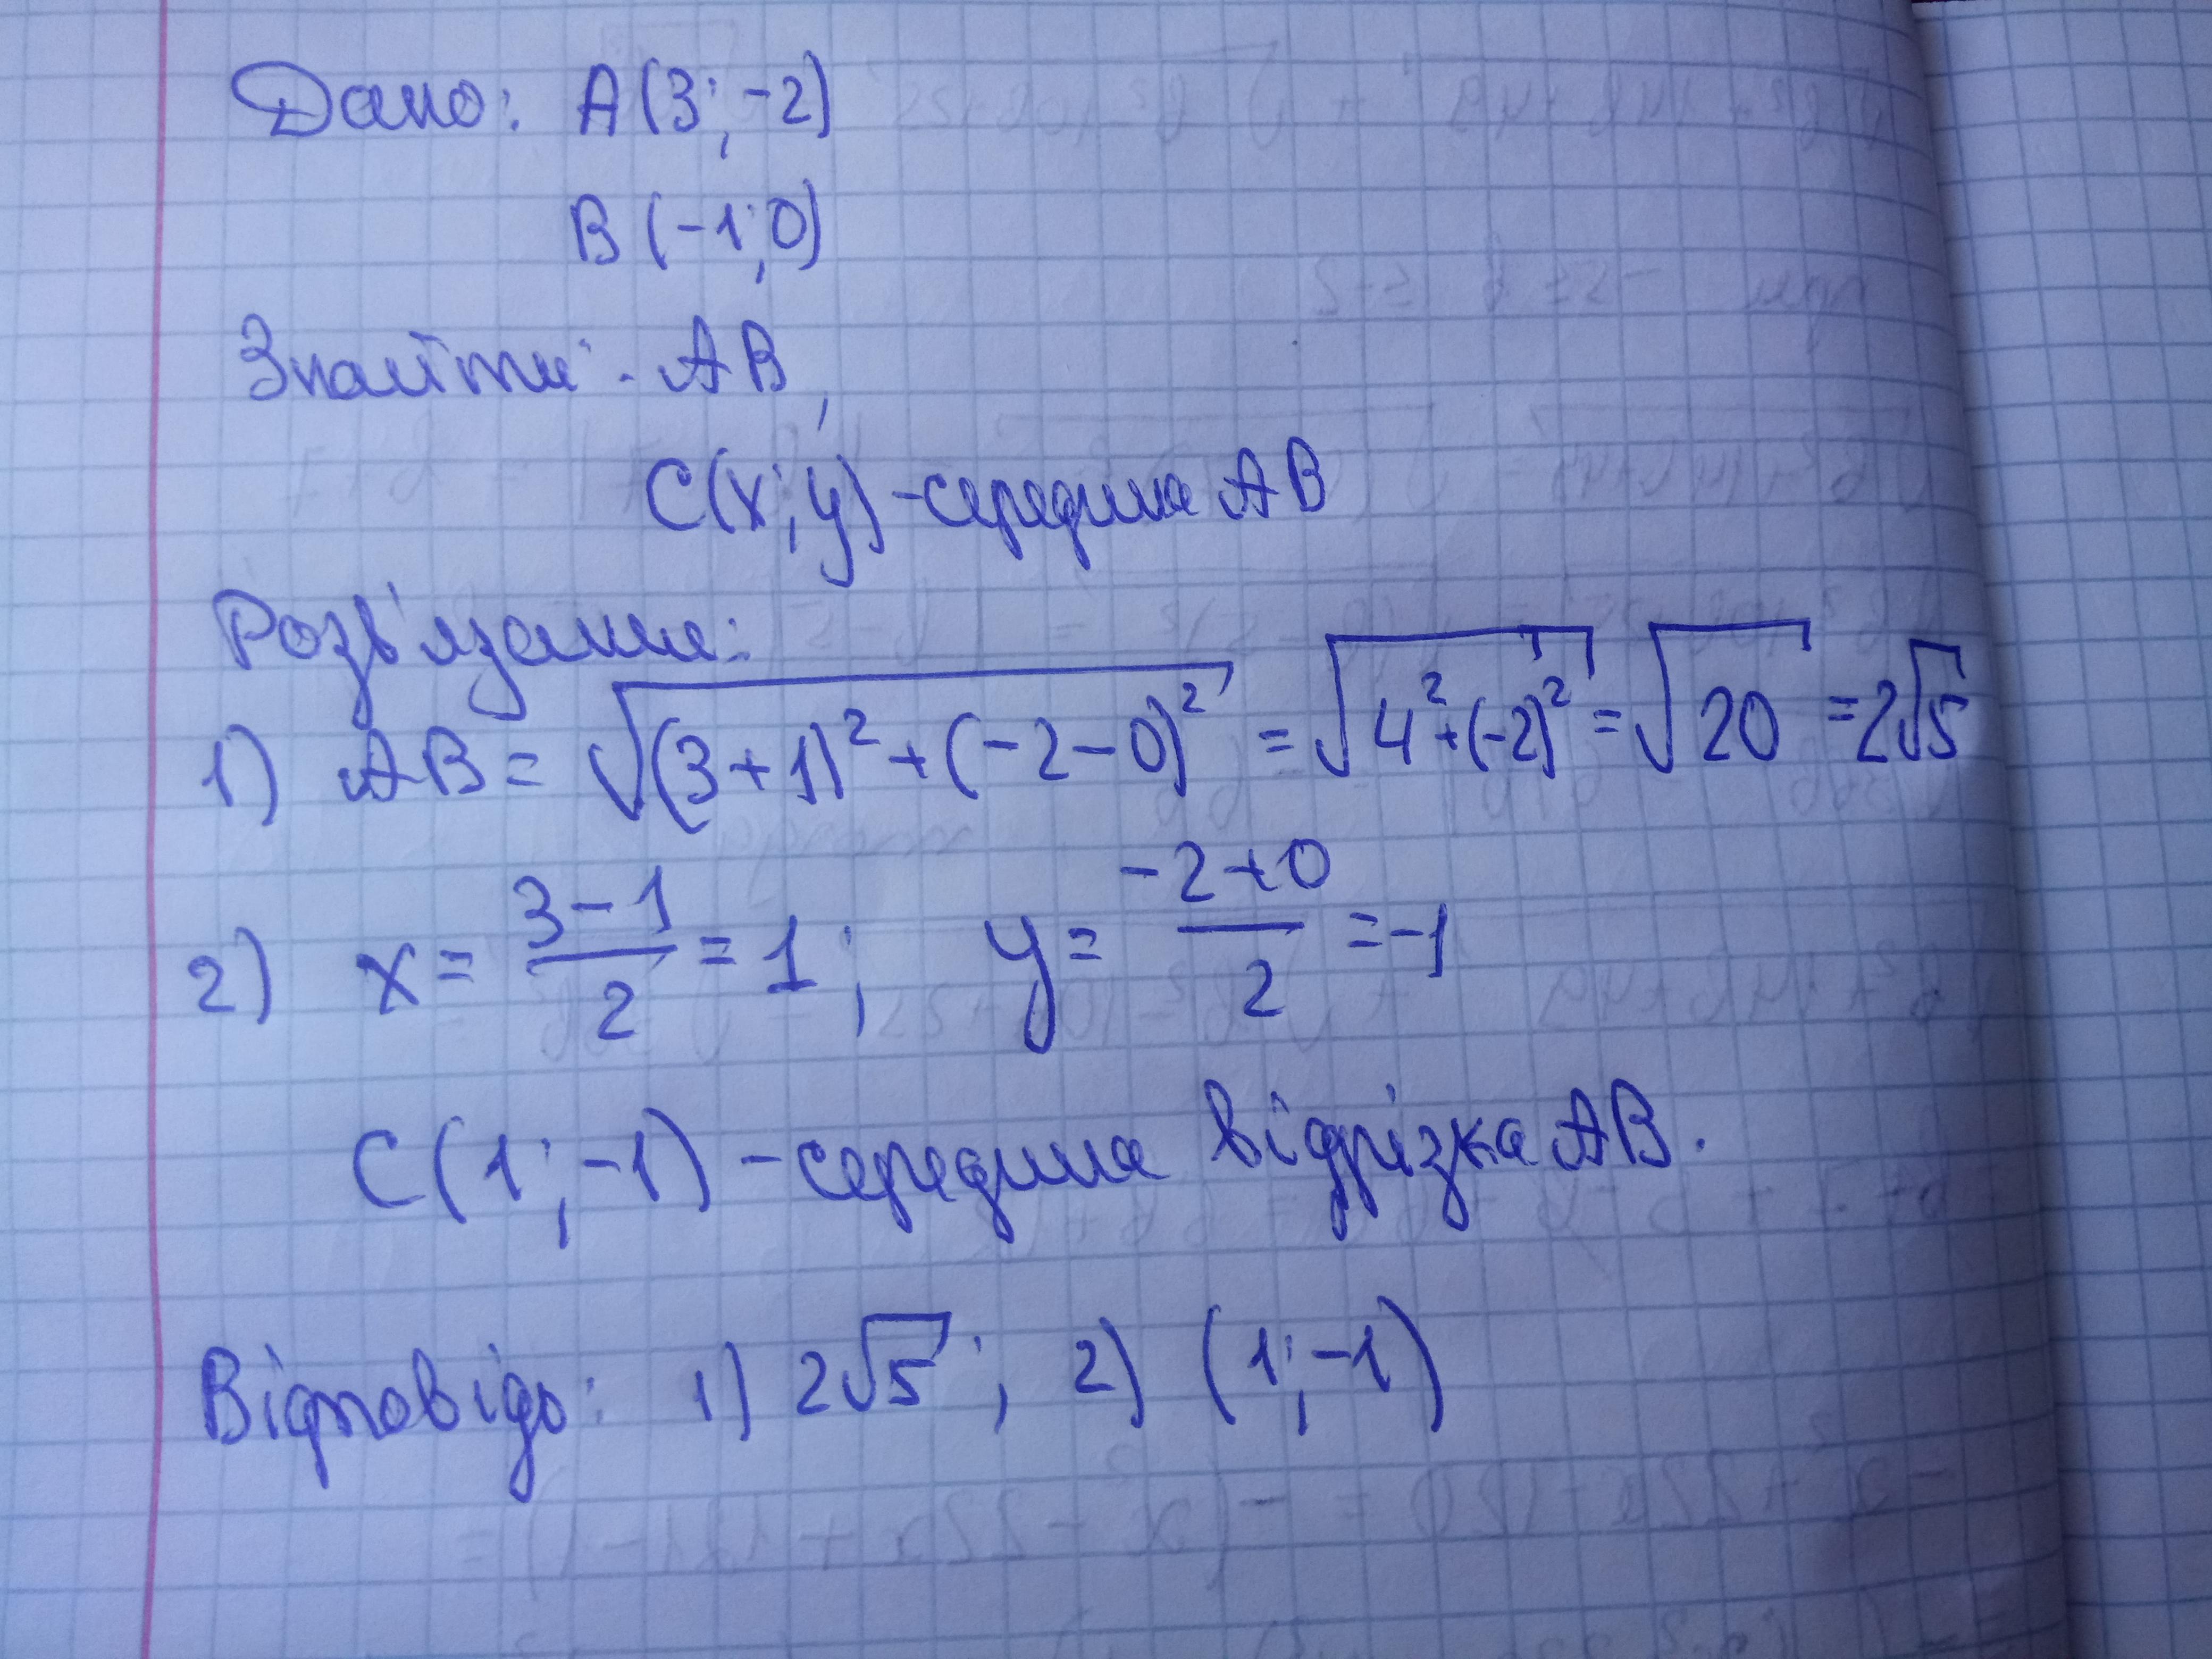 Дано: A(3; -2)
B(-1; 0)
Знайти: AB,
C(x; y) - середина AB
Розв'язання:
1) AB = √((3+1)² + (-2-0)²) = √(4² + (-2)²) = √20 = 2√5
2) x = (3-1)/2 = 1; y = (-2+0)/2 = -1
C(1; -1) - середина відрізка AB.
Відповідь: 1) 2√5; 2) (1; -1)